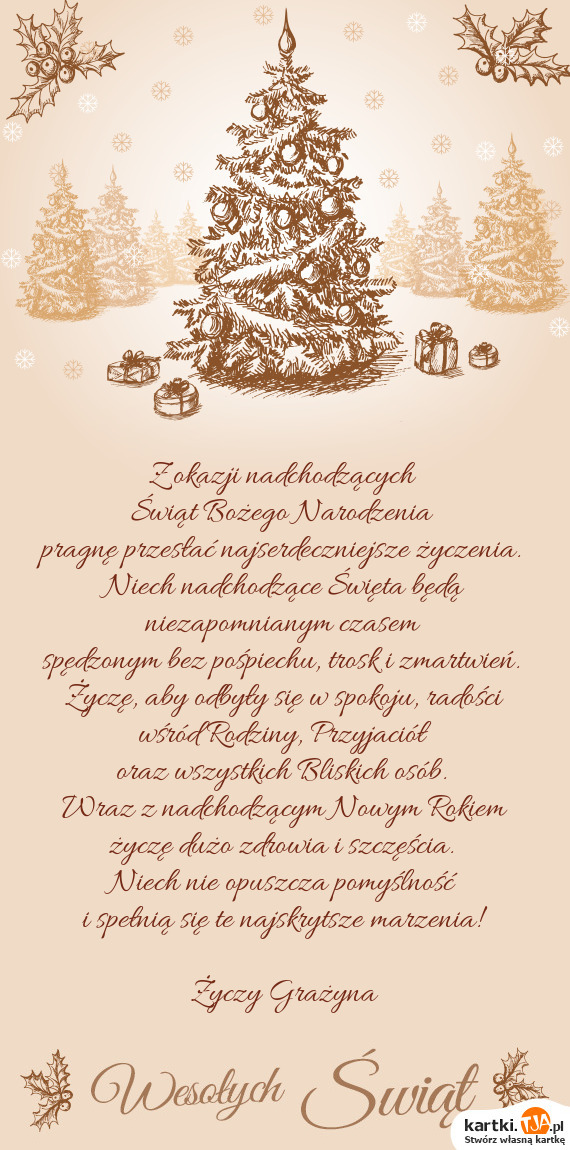 Z okazji nadchodzących
Świąt Bożego Narodzenia
pragnę przesłać najserdeczniejsze życzenia.
Niech nadchodzące Święta będą
niezapomnianym czasem
spędzonym bez pośpiechu, trosk i zmartwień.
Życzę, aby odbyły się w spokoju, radości
wśród Rodziny, Przyjaciół
oraz wszystkich Bliskich osób.
Wraz z nadchodzącym Nowym Rokiem
życzę dużo zdrowia i szczęścia.
Niech nie opuszcza pomyślność
i spełnią się te najskrytsze marzenia!
Życzy Grażyna
Wesołych Świąt
kartki.TJA.pl
Stwórz własną kartkę